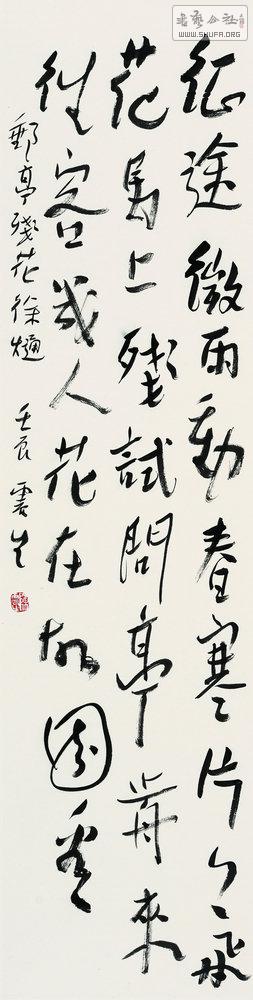 書藝公社
WWW.SHUFA.ORG
征途微雨動春寒片〻飛
花馬上殘試問亭歬來
往客幾人花在故園看
郵亭殘花徐熥 壬辰